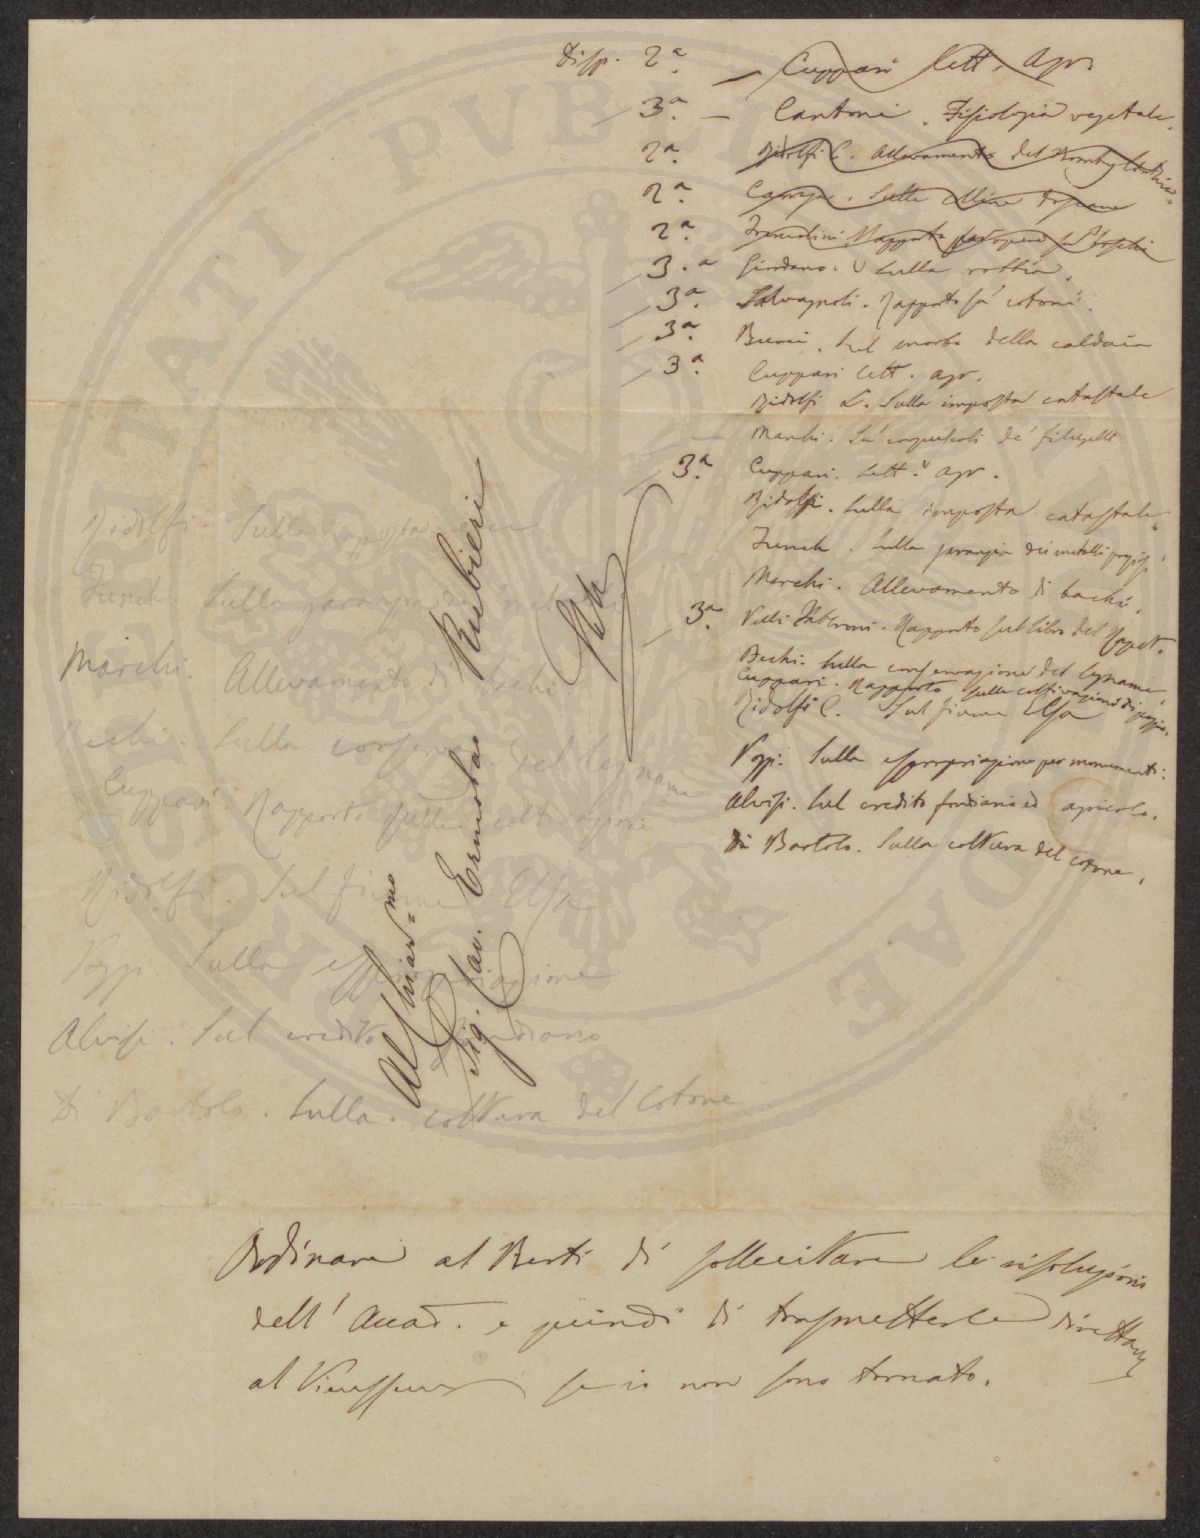 Disp. 2ª. — Cuppari Lett. Agr.
3ª. — Cantoni. Fisiologia vegetale.
2ª. Ridolfi C. Allevamento del Bombyx
2ª. Sulle colline toscane
2ª. Rapporto
3.ª Giordano. Sulla robbia.
3ª. Salvagnoli. Rapporto su' cotoni.
3ª. Sul morbo della caldaia
3ª. Cuppari lett. agr.
Ridolfi L. Sulla imposta catastale
Marchi. Su' de' filugelli
3ª. Cuppari. Lett. agr.
Ridolfi. Sulla imposta catastale.
Sulla garanzia dei metalli
Marchi. Allevamento di bachi.
3ª. Rapporto sul libro del
Bechi. Sulla conservazione del legname.
Cuppari. Rapporto sulle coltivazioni di
Ridolfi C. Sul fiume Elsa
Poggi. Sulla espropriazione per monumenti.
Alvisi. Sul credito fondiario ed agricolo.
Di Bartolo. Sulla coltura del cotone.
Ridolfi. Sulla imposta
Sulla garanzia dei metalli
Marchi. Allevamento di bachi.
Bechi. Sulla conservaz. del legname
Cuppari. Rapporto sulle coltivazioni
Ridolfi. Sul fiume Elsa
Poggi. Sulla espropriazione
Alvisi. Sul credito fondiario
Di Bartolo. Sulla coltura del Cotone
Al Chiar=mo
Sig. Cav. Ermolao Rubieri
SPM
Ordinare al Berti di sollecitare le risoluzioni
dell' Accad. e quindi di trasmetterle direttam
al Vieusseux se io non sono tornato.